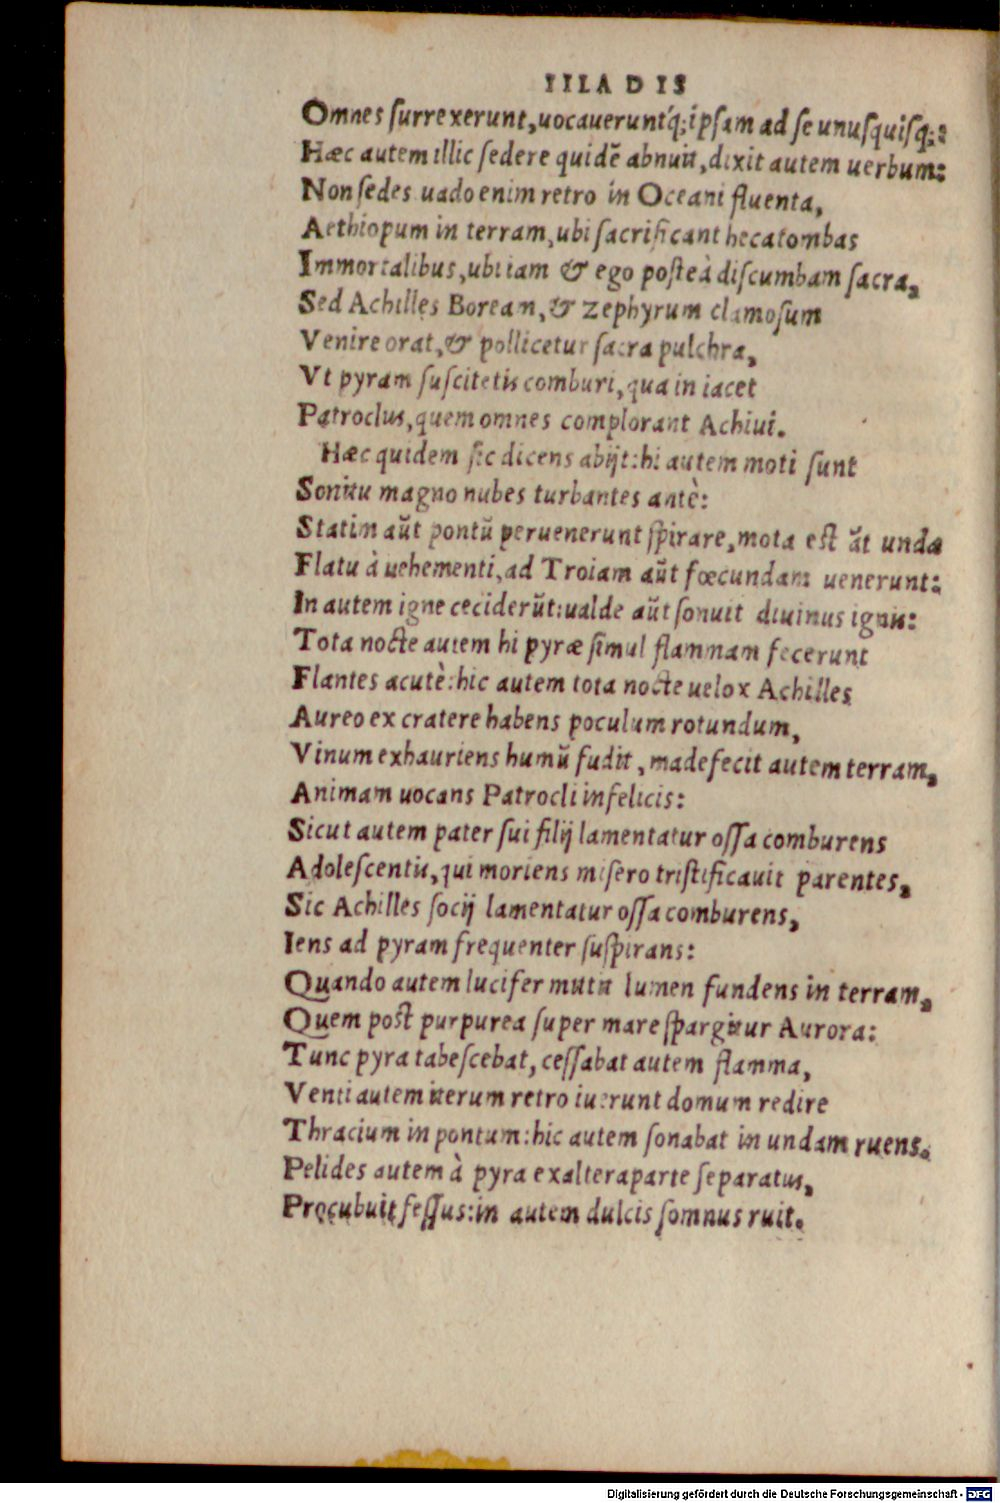 IILADIS
Omnes ſurrexerunt,uocauerunt́q;ipſam ad ſe unuſquiſq;:
Hæc autem illic ſedere quidẽ abnuit,dixit autem uerbum:
Non ſedes uado enim retro in Oceani fluenta,
Aethiopum in terram,ubi ſacrificant hecatombas
Immortalibus,ubi iam & ego poſteà diſcumbam ſacra,
Sed Achilles Boream,& Zephyrum clamoſum
Venire orat,& pollicetur ſacra pulchra,
Vt pyram ſuſcitetis comburi,qua in iacet
Patroclus,quem omnes complorant Achiui.
Hæc quidem ſic dicens abijt:hi autem moti ſunt
Sonitu magno nubes turbantes antè:
Statim aũt pontũ peruenerunt ſpirare,mota eſt ãt unda
Flatu à uehementi,ad Troiam aũt fœcundam uenerunt:
In autem igne ceciderũt:ualde aũt ſonuit diuinus ignis:
Tota nocte autem hi pyræ ſimul flammam fecerunt
Flantes acutè:hic autem tota nocte uelox Achilles
Aureo ex cratere habens poculum rotundum,
Vinum exhauriens humũ fudit,madefecit autem terram,
Animam uocans Patrocli infelicis:
Sicut autem pater ſui filij lamentatur oſſa comburens
Adoleſcentis,qui moriens miſero triſtificauit parentes,
Sic Achilles ſocij lamentatur oſſa comburens,
Iens ad pyram frequenter ſuſpirans:
Quando autem lucifer mittit lumen fundens in terram,
Quem poſt purpurea ſuper mare ſpargitur Aurora:
Tunc pyra tabeſcebat,ceſſabat autem flamma,
Venti autem iterum retro iuerunt domum redire
Thracium in pontum:hic autem ſonabat in undam ruens.
Pelides autem à pyra ex altera parte ſeparatus,
Procubuit feſſus:in autem dulcis ſomnus ruit.
Digitalisierung gefördert durch die Deutsche Forschungsgemeinschaft - DFG